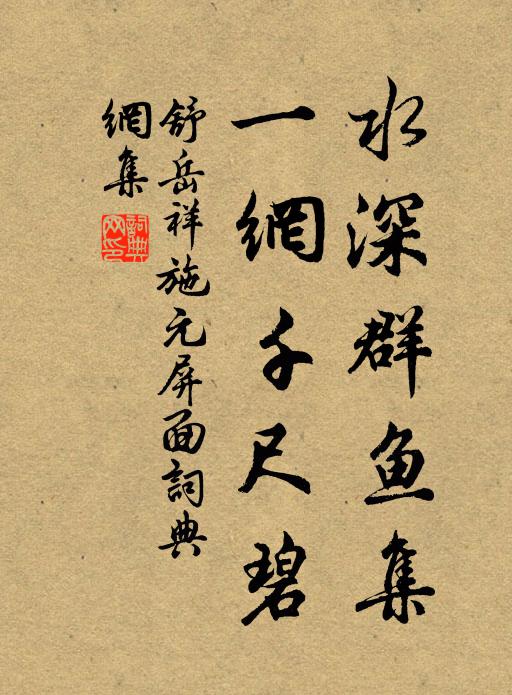 水深群鱼集
一網千尺碧
舒岳祥施元屏面詞典
網集
詞典
网印